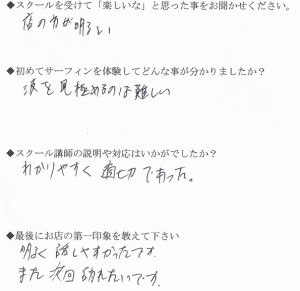 ◆スクールを受けて「楽しいな」と思った事をお聞かせください。
店の方が明るい
◆初めてサーフィンを体験してどんな事が分かりましたか？
波を見極めるのは難しい
◆スクール講師の説明や対応はいかがでしたか？
わかりやすく適切であった。
◆最後にお店の第一印象を教えて下さい
明るく話しやすかったです
また次回訪れたいです。